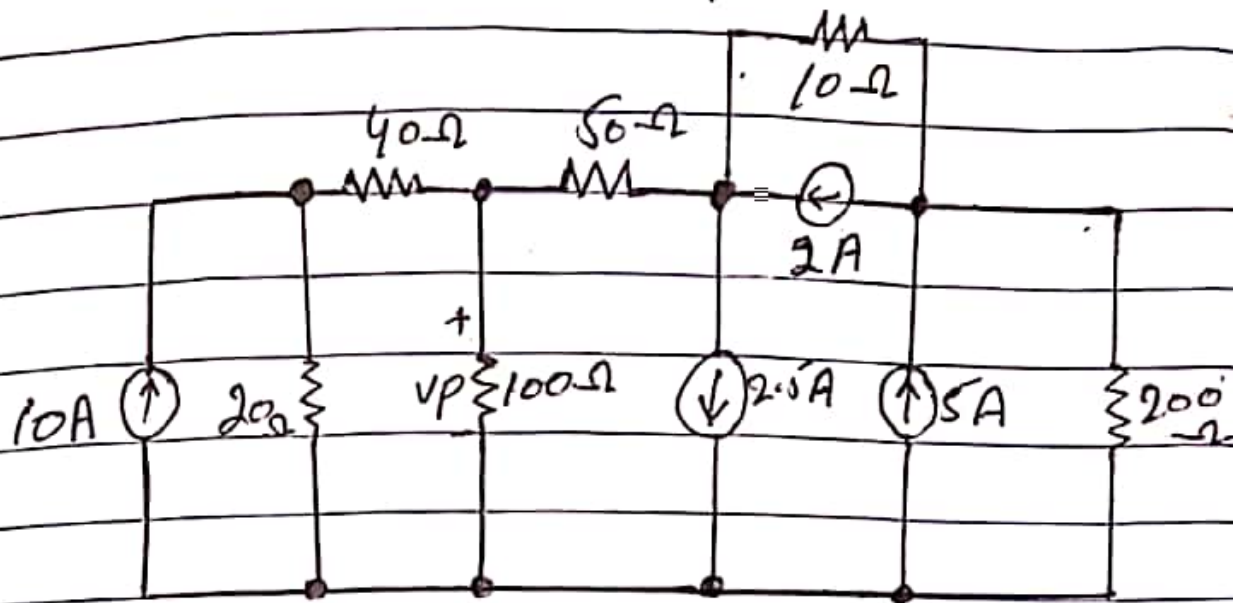 10Ω
40Ω
50Ω
2A
+
10A
20Ω
vp
100Ω
2.5A
5A
200
Ω